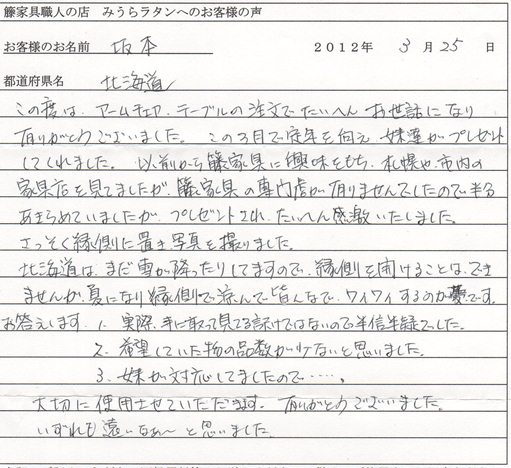 籐家具職人の店 みうらラタンへのお客様の声
お客様のお名前 坂本 2012年 3月25日
都道府県名 北海道
この度は、アームチェア、テーブルの注文でたいへんお世話になり
有りがとうございました。この3月で定年を向え、妹達がプレゼント
してくれました。以前から籐家具に興味をもち、札幌や市内の
家具店を見てましたが、籐家具の専門店が有りませんでしたので半ば
あきらめていましたが、プレゼントされ、たいへん感激いたしました。
さっそく縁側に置き写真を撮りました。
北海道は、まだ雪が降ったりしてますので、縁側を開けることは、でき
ませんが、夏になり縁側で涼んで皆んなで、ワイワイするのが夢です。
お答えします。1. 実際、手に取って見てる訳けではないので半信半疑でした。
2. 希望していた物の品数が少ないと思いました。
3. 妹が対応してましたので・・・・・。
大切に使用させていただきます。有りがとうございました。
いずれも遠いなぁ〜と思いました。